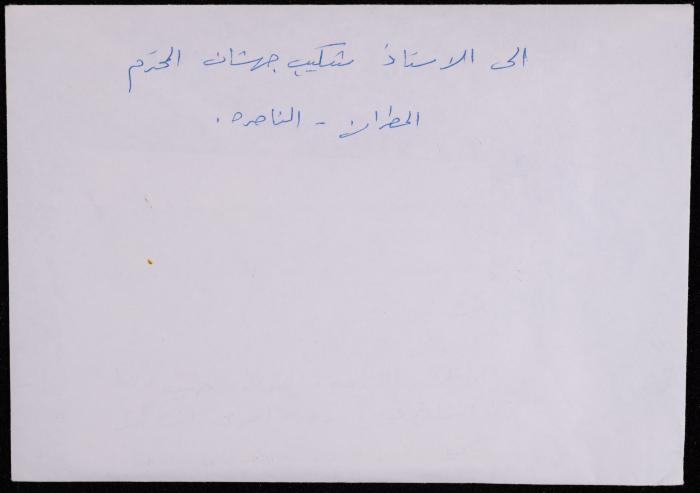 الى الاستاذ شكيب جهشان المحترم
المطران - الناصره .